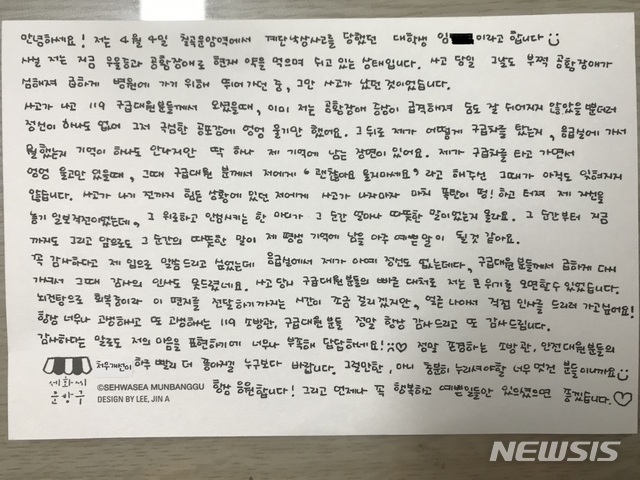 안녕하세요! 저는 4월 4일 칠곡운암역에서 계단낙상사고를 당했던 대학생 임 이라고 합니다☺
사실 저는 지금 우울증과 공황장애로 현재 약을 먹으며 쉬고 있는 상태입니다. 사고 당일 그날도 부쩍 공황장애가
심해져 급하게 병원에 가기 위해 뛰어가던 중, 그만 사고가 났던 것이었습니다.
사고가 나고 119 구급대원분들께서 오셨을때, 이미 저는 공황장애 증상이 급격하게 숨도 잘 쉬어지지 않았을 뿐더러
정신이 하나도 없어 그저 극심한 공포감에 엉엉 울기만 했어요. 그 뒤로 제가 어떻게 구급차를 탔는지, 응급실에 가서
뭘했는지 기억이 하나도 안나지만 딱 하나 제 기억에 남는 장면이 있어요. 제가 구급차를 타고 가면서
엉엉 울고만 있을때, 그때 구급대원 분께서 저에게 "괜찮아요 울지마세요" 라고 해주신 그때가 아직도 잊혀지지
않습니다. 사고가 나기 전까지 힘든 상황에 있던 저에게 사고가 나자마자 마치 폭탄이 떵! 하고 터져 제 자신을
놓기 일보직전이었는데, 그 위로하고 안심시키는 한 마디가 그 순간 얼마나 따뜻한 말이었는지 몰라요. 그 순간부터 지금
까지도 그리고 앞으로도 그 순간의 따뜻한 말이 제 평생 기억에 남을 아주 예쁜 말이 될것 같아요.
꼭 감사하다고 제 입으로 말씀드리고 싶었는데 응급실에서 제가 아예 정신도 없는데다, 구급대원분들께서 급하게 다시
가셔서 그때 감사의 인사도 못드렸네요. 사고 당시 구급대원분들의 빠른 대처로 저는 큰 위기를 모면할수 있었습니다.
뇌진탕으로 회복중이라 이 편지를 전달하기까지는 시간이 조금 걸리겠지만, 얼른 나아서 직접 인사를 드리러 가고싶어요!
항상 너무나 고생하시고 또 고생하시는 119 소방관, 구급대원 분들 정말 항상 감사드리고 또 감사드립니다.
감사하다는 말로도 저의 마음을 표현하기에 너무나 부족해 답답하네요! 정말 존경하는 소방관, 안전대원분들의
처우개선이 하루 빨리 더 좋아지길 누구보다 바랍니다. 그럴만한, 아니 충분히 누리셔야할 너무 멋진 분들이니까요☺
항상 응원합니다! 그리고 언제나 꼭 행복하고 예쁜일들만 있으셨으면 좋겠습니다.♡
세화씨
문방구
©SEHWASEA MUNBANGGU
DESIGN BY LEE, JIN A
NEWSIS